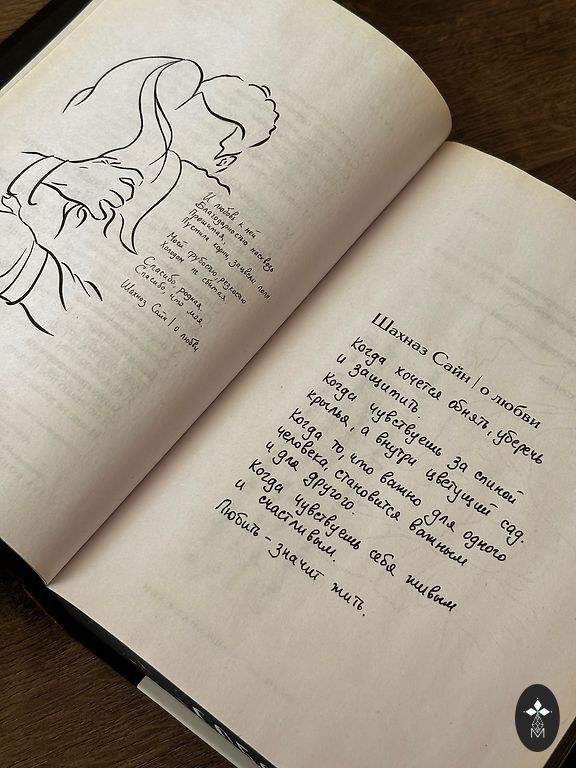 И любовь к ней
Благодарностью насквозь
Прошитая,
Пустила корни, зацвели поля
Моей грубостью, резкостью
Холодом не сбитая.
Спасибо, родная,
Спасибо, что моя.
Шахназ Сайн | о любви
Шахназ Сайн | о любви
Когда хочется обнять, уберечь
и защитить.
Когда чувствуешь за спиной
крылья, а внутри цветущий сад.
Когда то, что важно для одного
человека, становится важным
и для другого.
Когда чувствуешь себя живым
и счастливым.
Любить – значит жить.
M